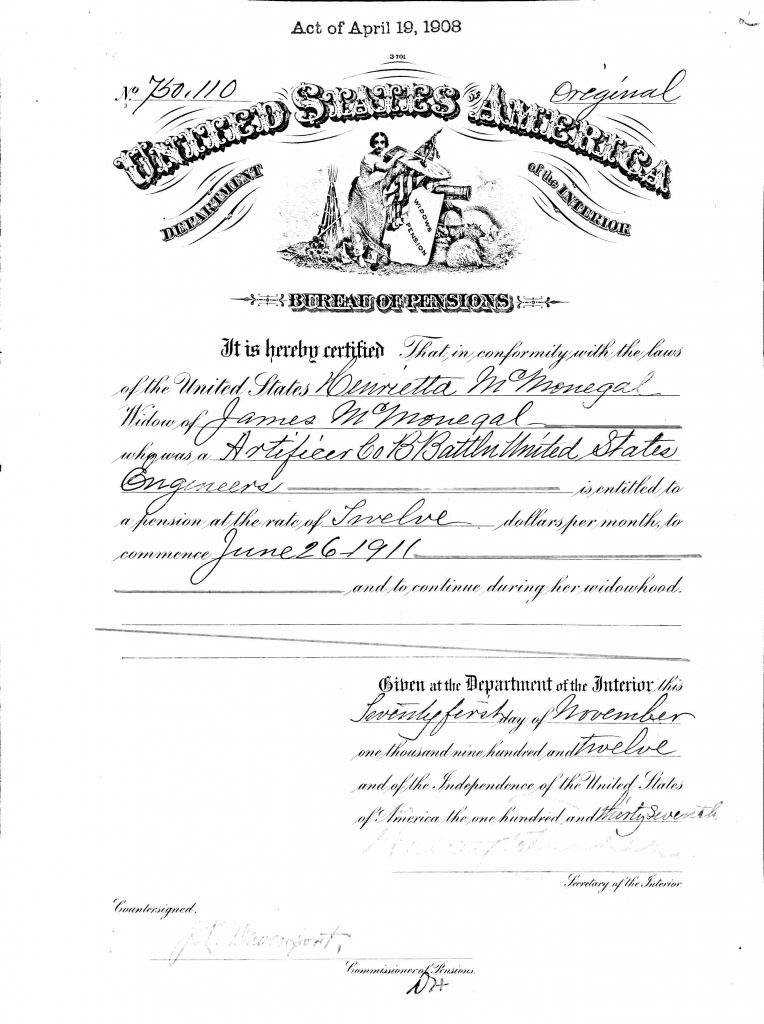 Act of April 19, 1908
3-701
No 750,110 Original
UNITED STATES OF AMERICA
DEPARTMENT of the INTERIOR
WIDOWS PENSION
BUREAU OF PENSIONS
It is hereby certified That in conformity with the laws
of the United States Henrietta McMonegal
Widow of James McMonegal
who was a Artificer Co B Battln United States
Engineers is entitled to
a pension at the rate of Twelve dollars per month, to
commence June 26 1911
and to continue during her widowhood.
Given at the Department of the Interior this
Seventyfirst day of November
one thousand nine hundred and twelve
and of the Independence of the United States
of America the one hundred and thirty seventh
Secretary of the Interior
Countersigned,
J. L. Davenport,
Commissioner of Pensions.